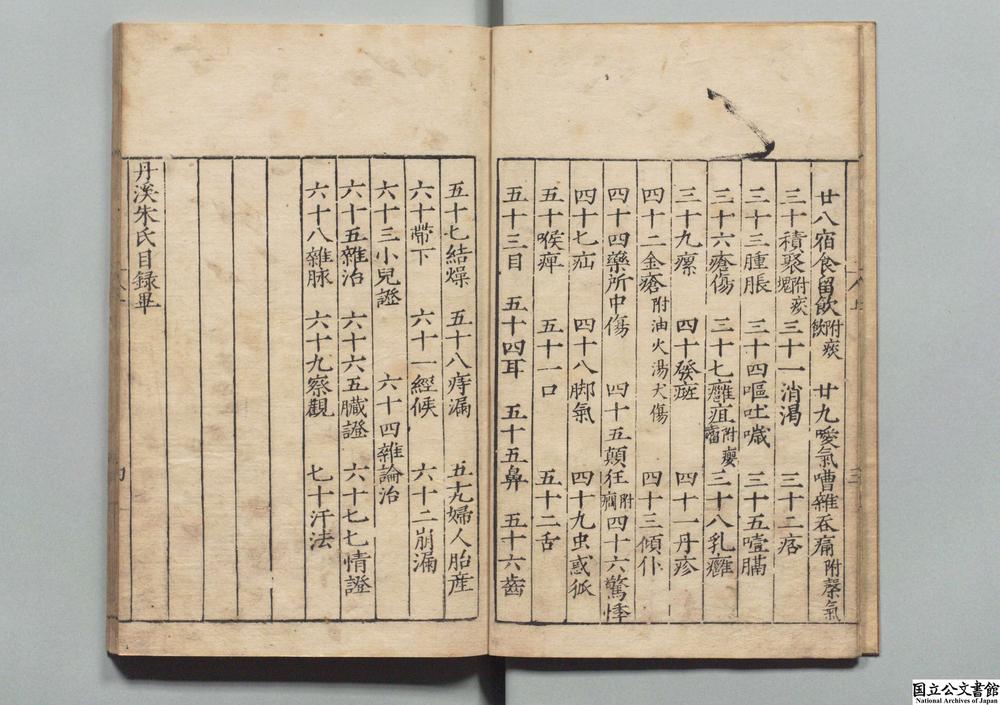 廿八宿食留飮附痰飮 廿九噯氣嘈雜吞痛附
三十積聚附痰塊 三十一消渴 三十二痞
三十三腫脹 三十四嘔吐噦 三十五噎膈
三十六瘡傷 三十七癰疽附癭瘤 三十八乳癰
三十九瘰 四十發斑 四十一丹疹
四十二金瘡附油火湯犬傷 四十三傾仆
四十四藥所中傷 四十五顛狂附癎 四十六驚悸
四十七疝 四十八脚氣 四十九虫惑狐
五十喉痺 五十一口 五十二舌
五十三目 五十四耳 五十五鼻 五十六齒
五十七結燥 五十八痔漏 五十九婦人胎産
六十帶下 六十一經候 六十二崩漏
六十三小兒證 六十四雜論治
六十五雜治 六十六五臟證 六十七七情證
六十八雜脉 六十九察觀 七十汗法
丹溪朱氏目録畢
国立公文書館
National Archives of Japan